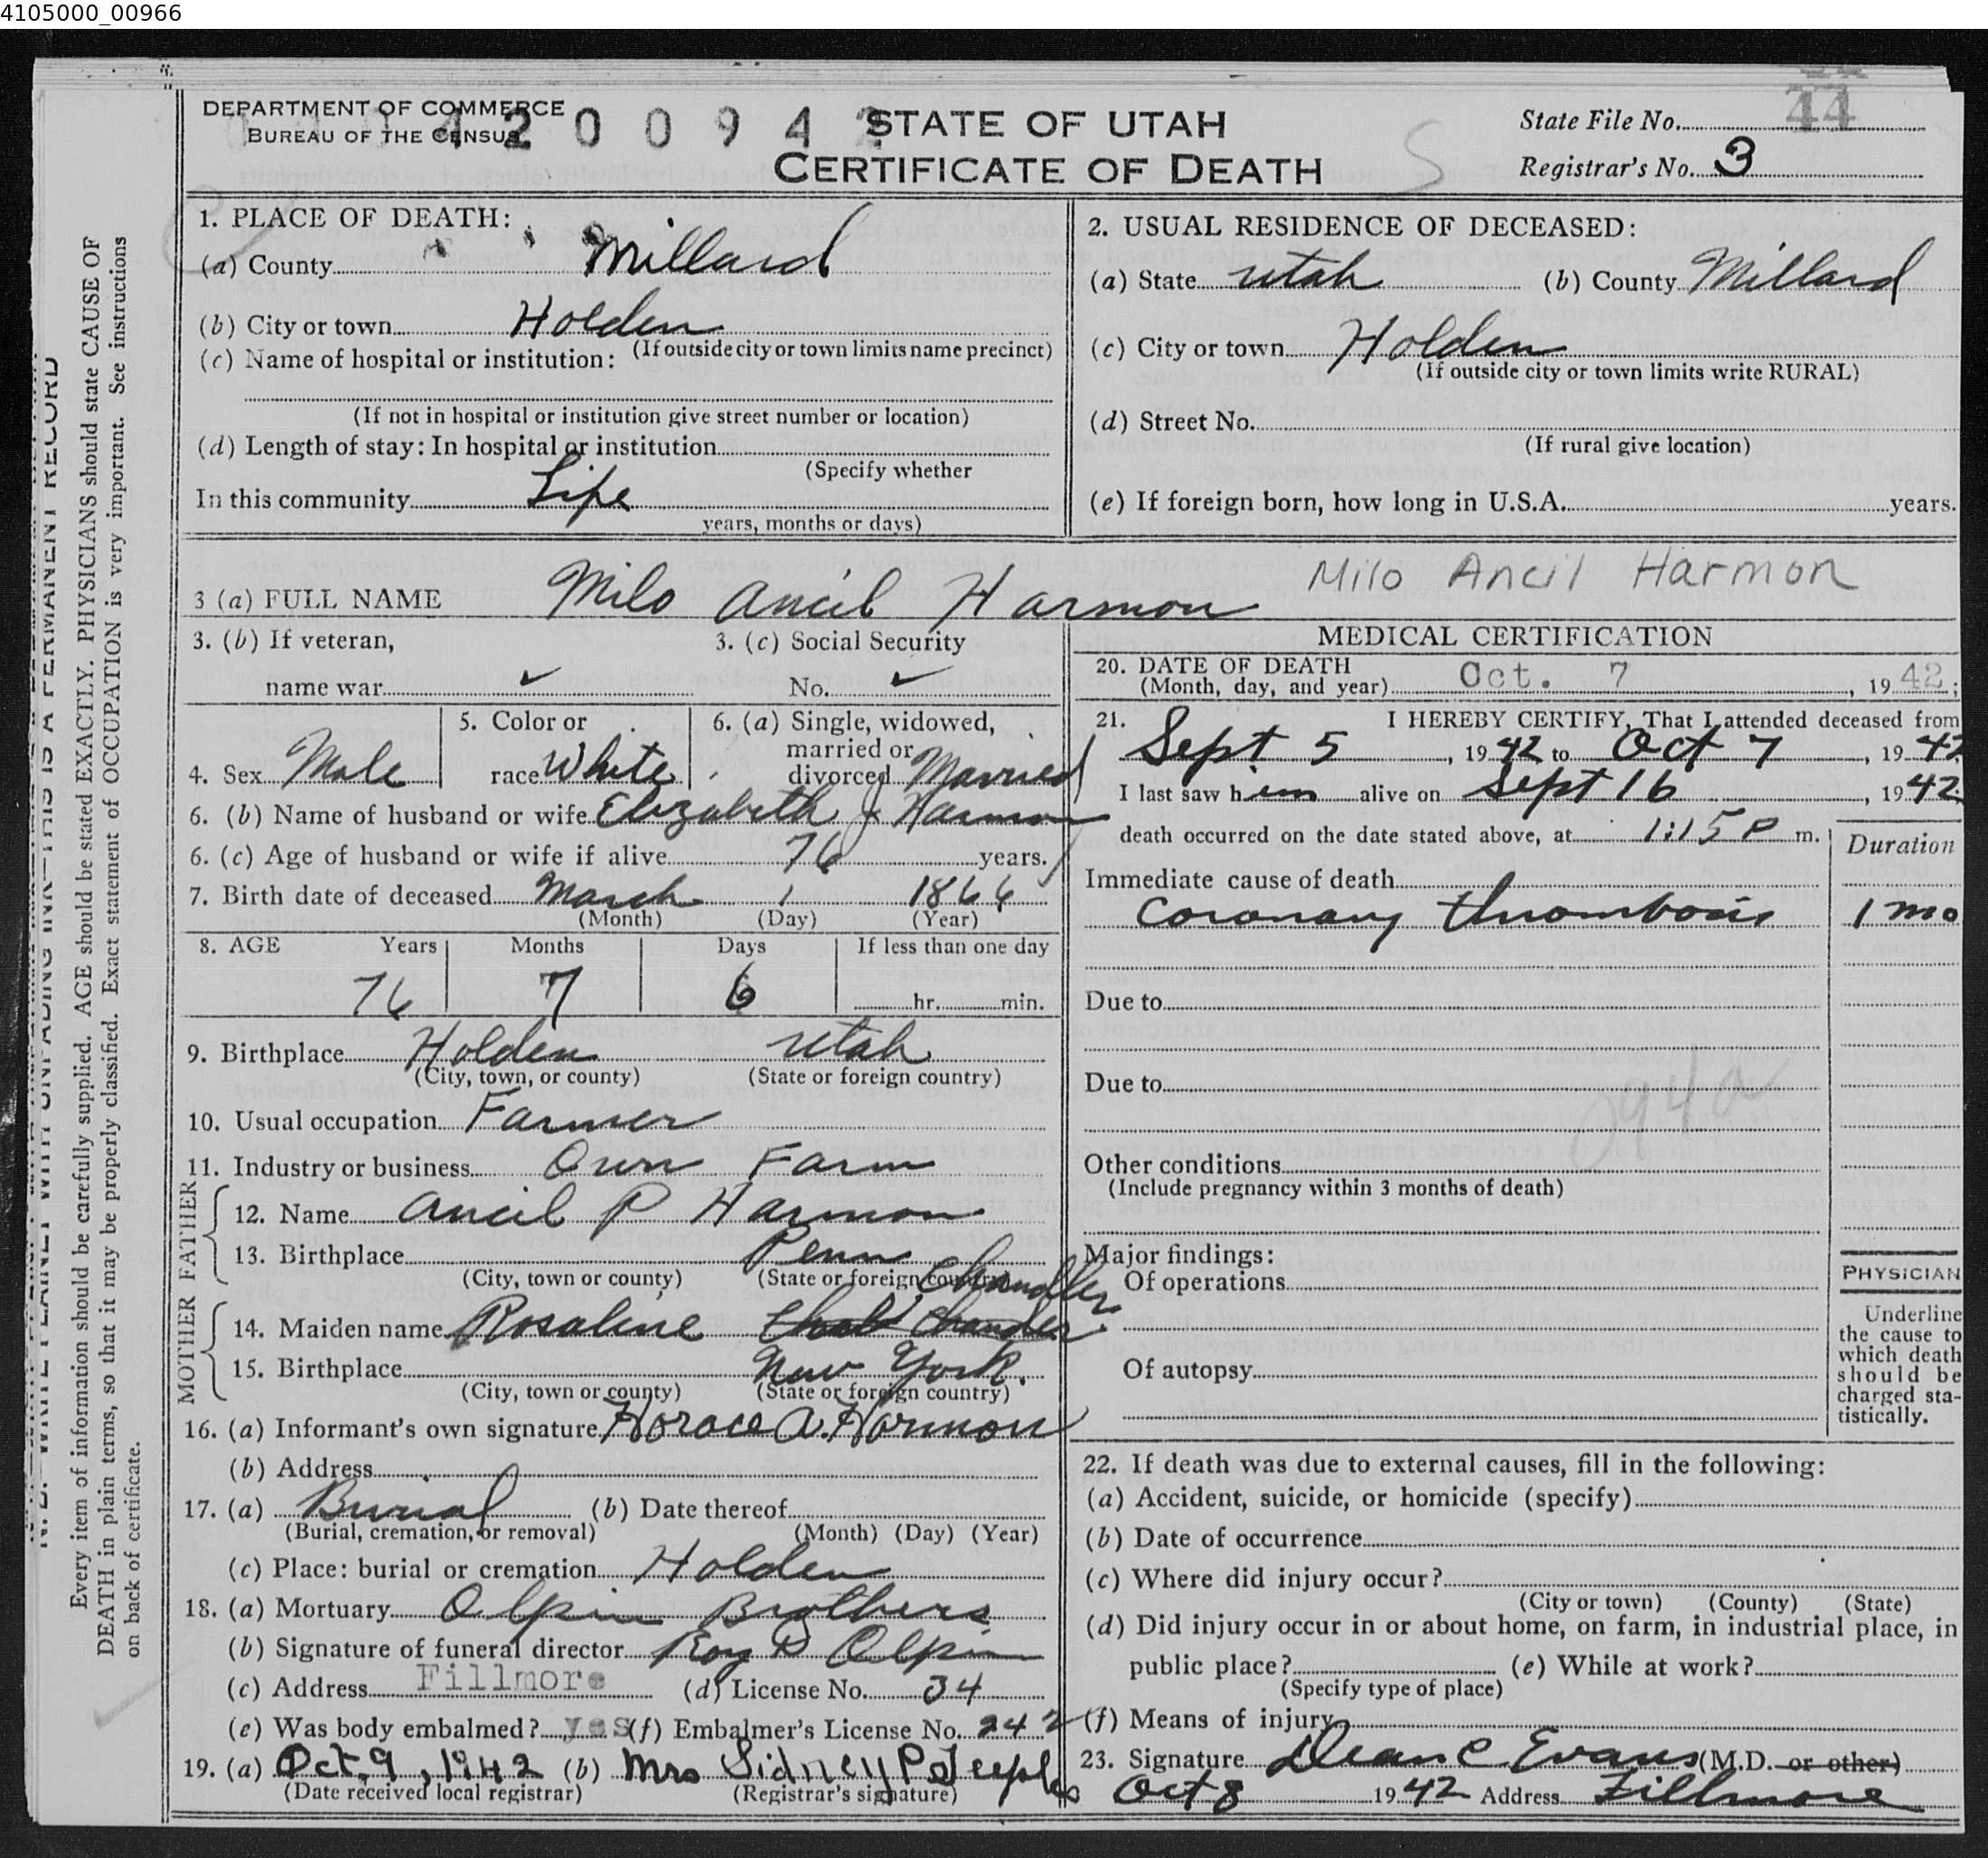 4105000_00966
DEPARTMENT OF COMMERCE
BUREAU OF THE CENSUS
4 2 0 0 9 4 2
STATE OF UTAH
CERTIFICATE OF DEATH
S
State File No. 44
Registrar's No. 3
1. PLACE OF DEATH:
(a) County Millard
(b) City or town Holden
(If outside city or town limits name precinct)
(c) Name of hospital or institution:
(If not in hospital or institution give street number or location)
(d) Length of stay: In hospital or institution
(Specify whether
In this community Life
years, months or days)
2. USUAL RESIDENCE OF DECEASED:
(a) State Utah (b) County Millard
(c) City or town Holden
(If outside city or town limits write RURAL)
(d) Street No.
(If rural give location)
(e) If foreign born, how long in U.S.A. years.
3 (a) FULL NAME Milo Ancil Harmon Milo Ancil Harmon
3. (b) If veteran, 3. (c) Social Security
name war ✓ No. ✓
4. Sex Male 5. Color or race White 6. (a) Single, widowed, married or divorced Married
6. (b) Name of husband or wife Elizabeth J Harmon
6. (c) Age of husband or wife if alive 76 years.
7. Birth date of deceased March 1 1866
(Month) (Day) (Year)
8. AGE Years Months Days If less than one day
76 7 6 hr. min.
9. Birthplace Holden Utah
(City, town, or county) (State or foreign country)
10. Usual occupation Farmer
11. Industry or business Own Farm
FATHER
12. Name Ancil P Harmon
13. Birthplace Penn
(City, town or county) (State or foreign country)
MOTHER
Chandler
14. Maiden name Rosaline Chandler
15. Birthplace New York.
(City, town or county) (State or foreign country)
16. (a) Informant's own signature Horace A. Harmon
(b) Address
17. (a) Burial (b) Date thereof
(Burial, cremation, or removal) (Month) (Day) (Year)
(c) Place: burial or cremation Holden
18. (a) Mortuary Olpin Brothers
(b) Signature of funeral director Roy P Olpin
(c) Address Fillmore (d) License No. 34
(e) Was body embalmed? yes (f) Embalmer's License No. 242
19. (a) Oct. 9, 1942 (b) Mrs Sidney P Teeples
(Date received local registrar) (Registrar's signature)
MEDICAL CERTIFICATION
20. DATE OF DEATH
(Month, day, and year) Oct. 7, 1942;
21. I HEREBY CERTIFY, That I attended deceased from
Sept 5, 1942 to Oct 7, 1942
I last saw him alive on Sept 16, 1942
death occurred on the date stated above, at 1:15 P m.
Duration
Immediate cause of death
Coronary thrombosis 1 mo
Due to
Due to
94a
Other conditions
(Include pregnancy within 3 months of death)
Major findings:
Of operations
Of autopsy
PHYSICIAN
Underline
the cause to
which death
should be
charged sta-
tistically.
22. If death was due to external causes, fill in the following:
(a) Accident, suicide, or homicide (specify)
(b) Date of occurrence
(c) Where did injury occur?
(City or town) (County) (State)
(d) Did injury occur in or about home, on farm, in industrial place, in
public place? (e) While at work?
(Specify type of place)
(f) Means of injury
23. Signature Dean C Evans (M.D. or other)
Oct 8 1942 Address Fillmore
Every item of information should be carefully supplied. AGE should be stated EXACTLY. PHYSICIANS should state CAUSE OF
DEATH in plain terms, so that it may be properly classified. Exact statement of OCCUPATION is very important. See instructions
on back of certificate.